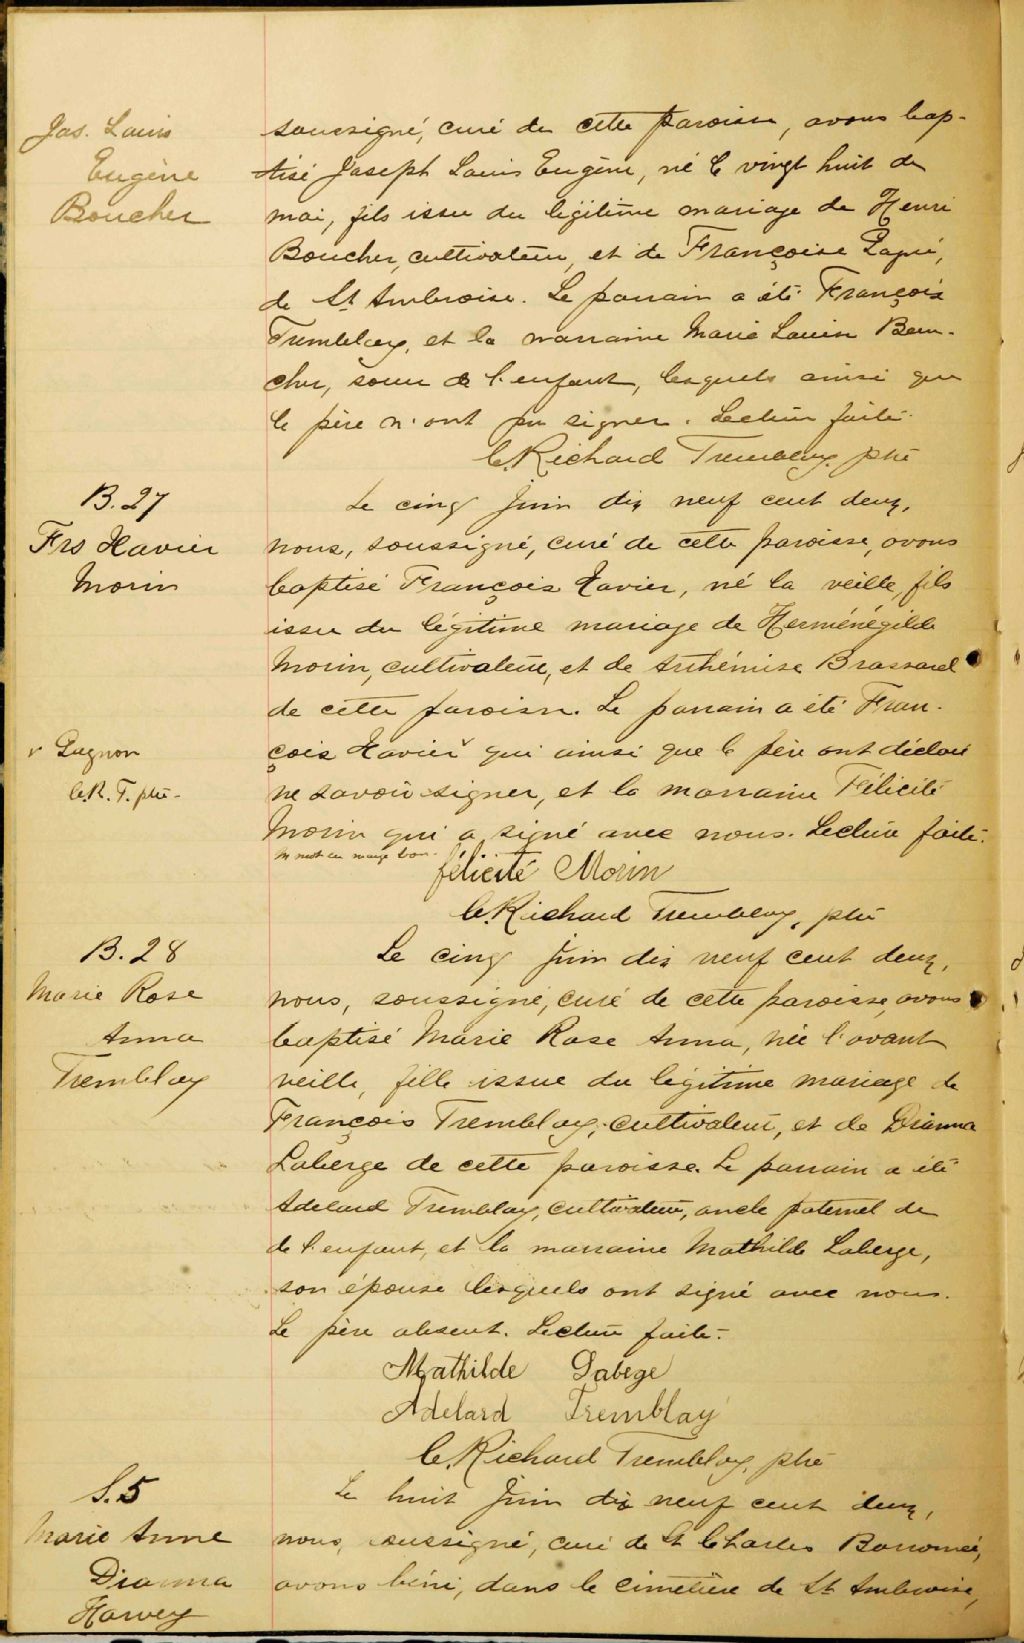 Jos. Louis
Eugène
Boucher
soussigné, curé de cette paroisse, avons bap-
tisé Joseph Louis Eugène, né le vingt huit de
mai, fils issu du légitime mariage de Henri
Boucher, cultivateur, et de Françoise
de St Ambroise. Le parrain a été François
Tremblay, et la marraine Marie Louise Bou-
cher, sœur de l'enfant, lesquels ainsi que
le père n'ont pu signer. Lecture faite.
C. Richard Tremblay, ptre
B. 27
Frs Xavier
Morin
Le cinq Juin dix neuf cent deux,
nous, soussigné, curé de cette paroisse, avons
baptisé François Xavier, né la veille, fils
issu du légitime mariage de Herménégilde
Morin, cultivateur, et de Arthémise Brassard
de cette paroisse. Le parrain a été Fran-
v Gagnon
C.R.T. ptre-
çois Xavier v qui ainsi que le père ont déclaré
ne savoir signer, et la marraine Félicité
Morin qui a signé avec nous. Lecture faite.
félicité Morin
C. Richard Tremblay, ptre
B. 28
Marie Rose
Anna
Tremblay
Le cinq Juin dix neuf cent deux,
nous, soussigné, curé de cette paroisse, avons
baptisé Marie Rose Anna, née l'avant
veille, fille issue du légitime mariage de
François Tremblay, cultivateur, et de Dianna
Laberge de cette paroisse. Le parrain a été
Adelard Tremblay, cultivateur, oncle paternel de
de l'enfant, et la marraine Mathilde Laberge,
son épouse lesquels ont signé avec nous.
Le père absent. Lecture faite.
Mathilde Labege
Adelard Tremblay
C. Richard Tremblay, ptre
S. 5
Marie Anne
Dianna
Harvey
Le huit Juin dix neuf cent deux,
nous, soussigné, curé de St Charles Borromée,
avons béni, dans le cimetière de St Ambroise,